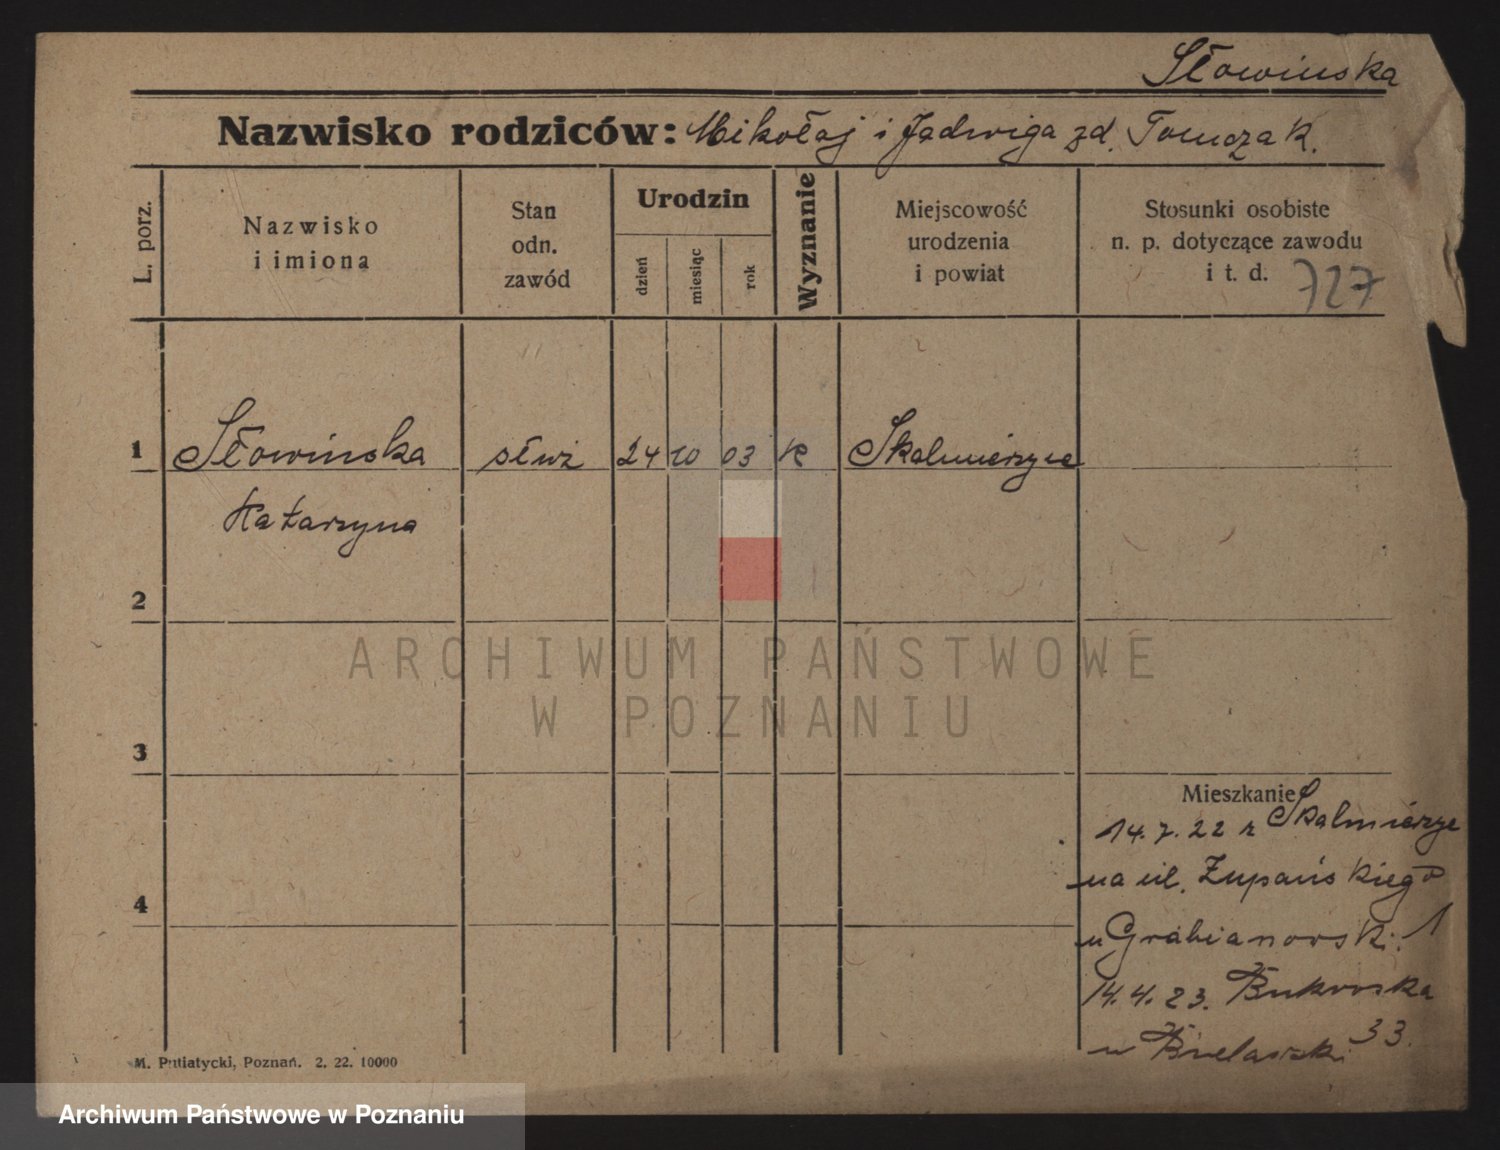 Słowinska
Nazwisko rodziców: Mikołaj i Jadwiga zd. Tomczak.
L. porz.
Nazwisko
i imiona
Stan
odn.
zawód
Urodzin
dzień
miesiąc
rok
Wyznanie
Miejscowość
urodzenia
i powiat
Stosunki osobiste
n. p. dotyczące zawodu
i t. d.
727
1 Słowinska służ 24 10 03 K Skalmierzyce
Katarzyna
2
3
4
Mieszkanie
14.7.22 z Skalmierzyc
na ul. Żupańskiego
u Grabianowski. 1
14.4.23. Bukowska
33.
M. Putiatycki, Poznań. 2. 22. 10000
ARCHIWUM PAŃSTWOWE
W POZNANIU
Archiwum Państwowe w Poznaniu